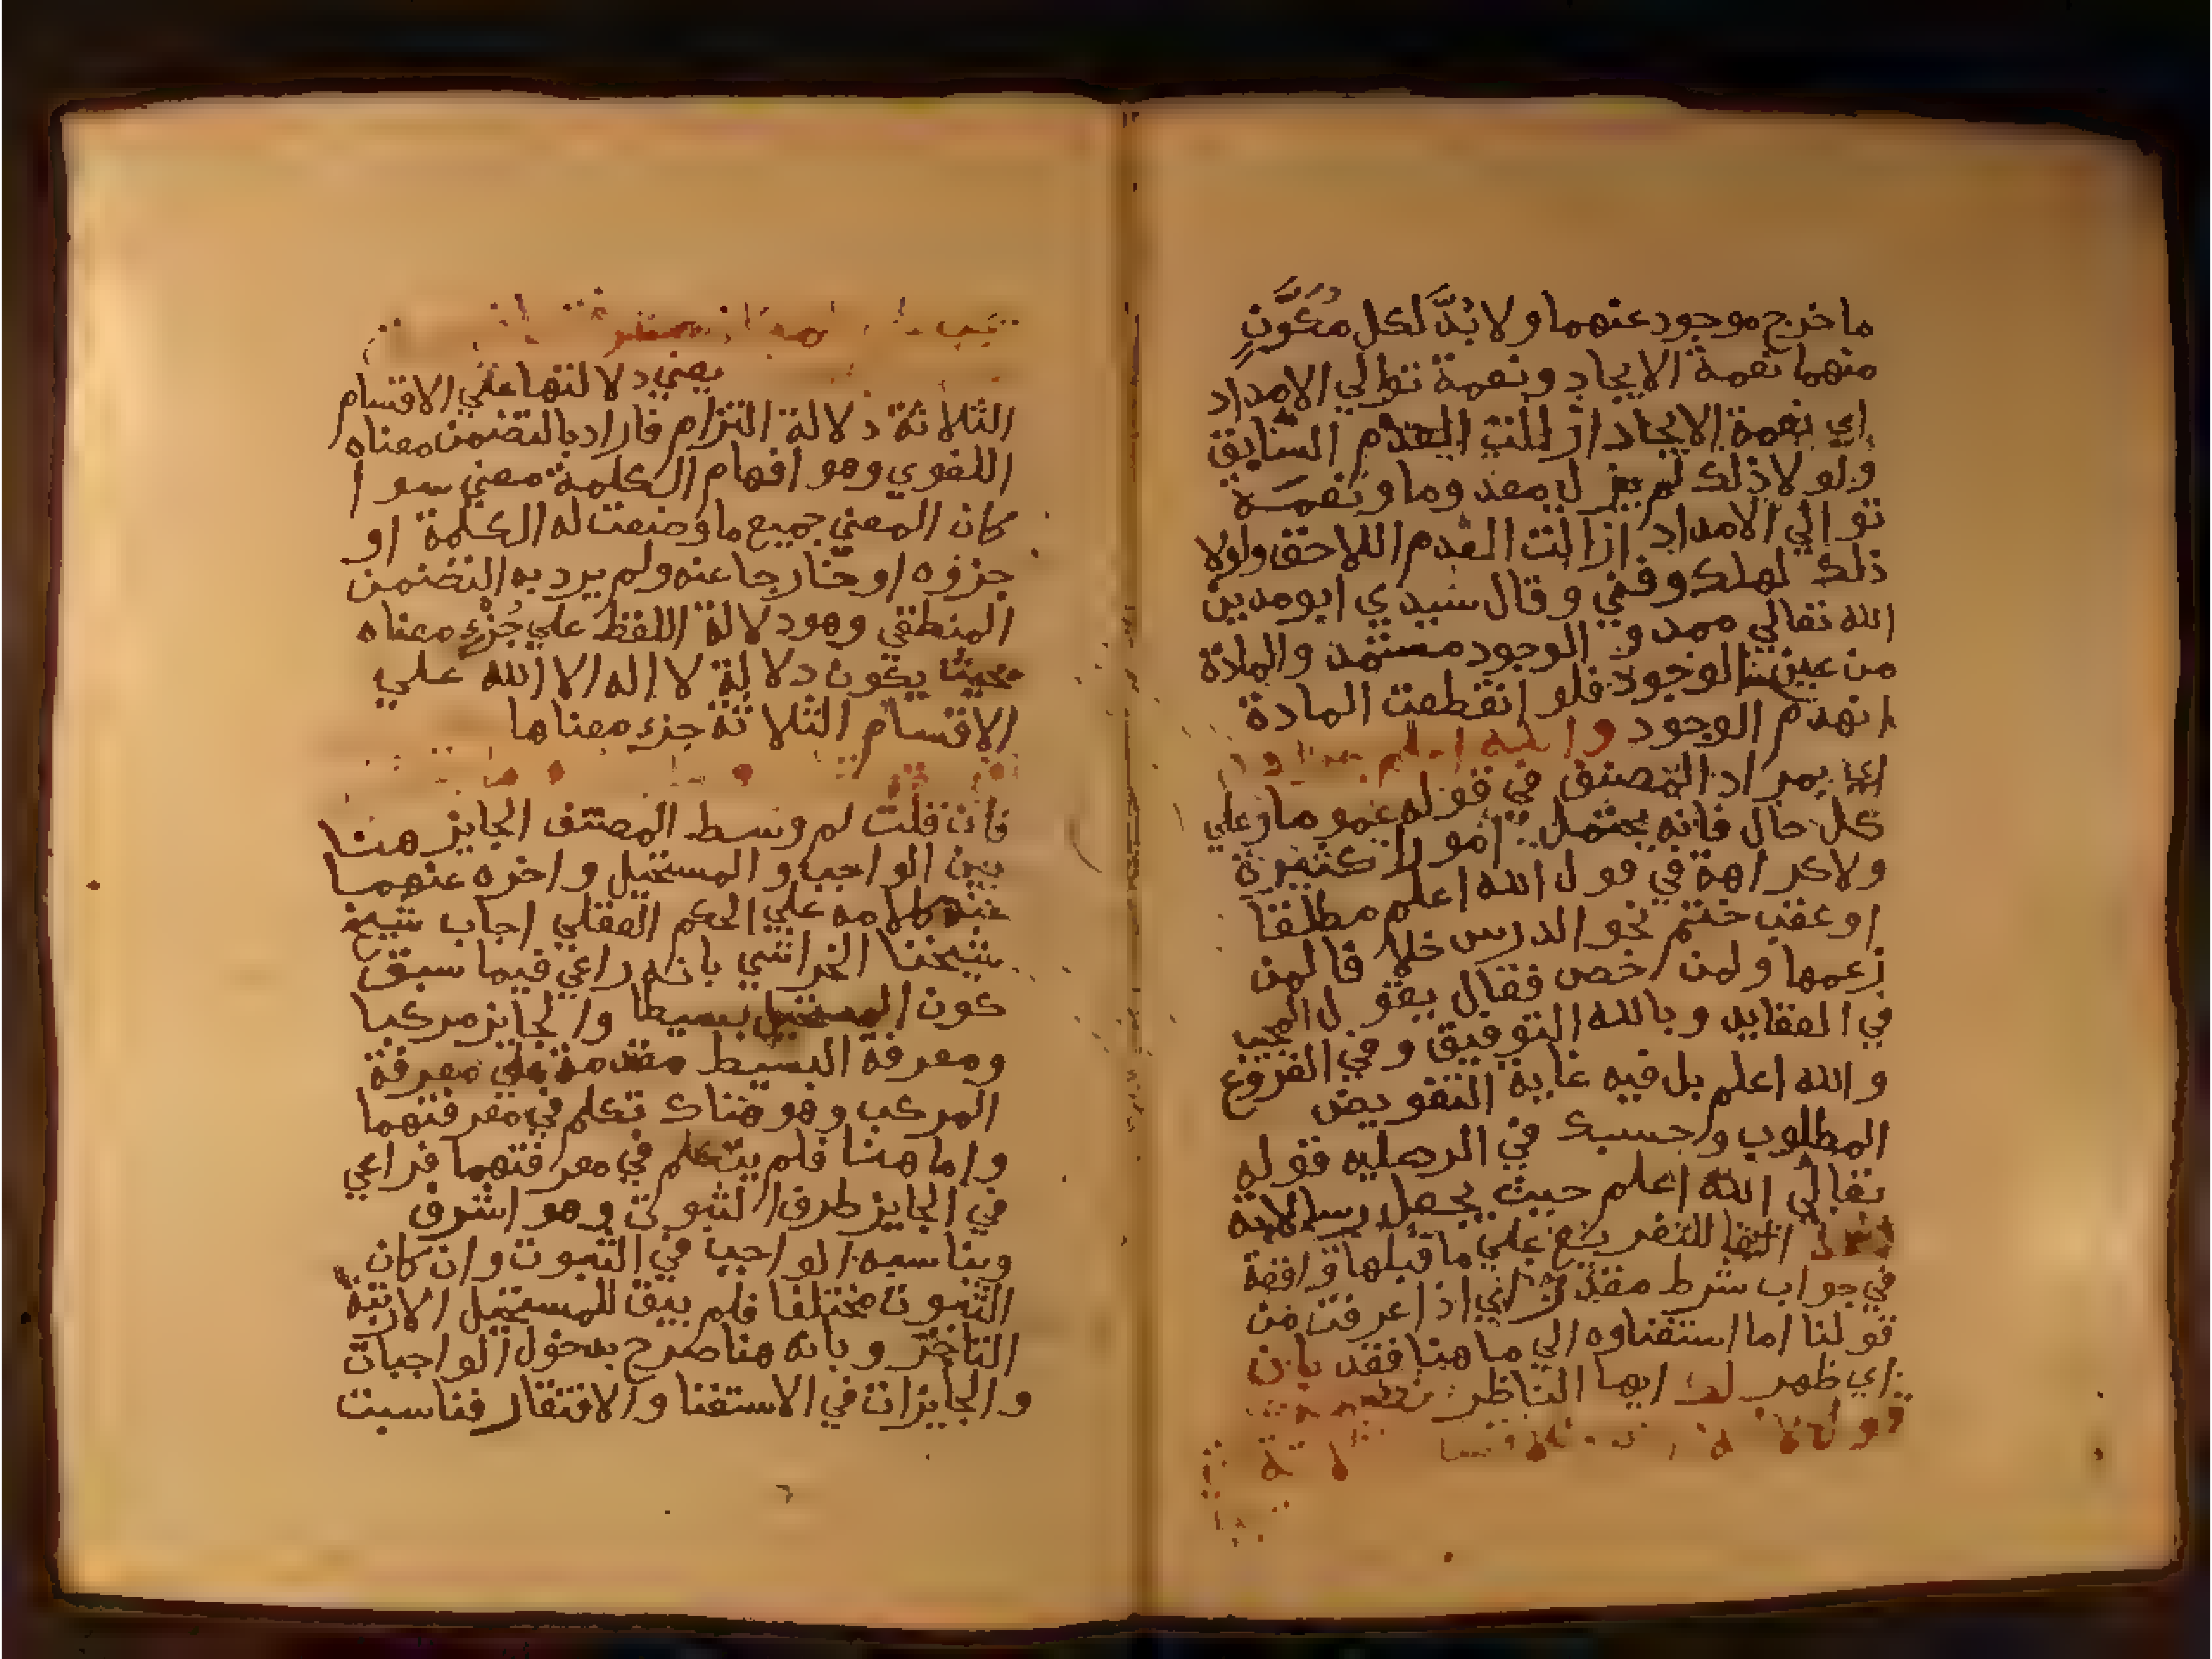 ما خرج موجود عنهما ولا بُدَّ لكل مكَوَّنٍ
منهما نعمة الايجاد ونعمة توالي الامداد
اي نعمة الايجاد ازالت العدم السابق
ولولا ذلك لم يزل معدوما ونعمة
توالي الامداد ازالت العدم اللاحق ولولا
ذلك لهلك وفني وقال سيدي ابومدين
الله تعالي ممد والوجود مستمد والمادة
من عين الوجود فلو انقطعت المادة
انهدم الوجود والله اعلم
اي بمراد المصنف في قوله عموما وعلي
كل حال فانه يحتمل امورا كثيرة
ولا كراهة في قول الله اعلم مطلقا
او عقب ختم نحو الدرس خلافا لمن
زعمها ولمن خص فقال يقول المجيب
في العقايد وبالله التوفيق وفي الفروع
والله اعلم بل فيه غاية التفويض
المطلوب وحسبك في الرد عليه قوله
تعالي الله اعلم حيث يجعل رسالاته
الفا للتفريع علي ما قبلها واقعة
في جواب شرط مقدر اي اذا عرفت من
قولنا اما استغناوه الي ما هنا فقد بان
اي ظهر لك ايها الناظر
قول لا
يعني دلالتها علي الاقسام
الثلاثة دلالة التزام فاراد بالتضمن معناه
اللغوي وهو افهام الكلمة معني سوا
كان المعني جميع ما وضعت له الكلمة او
جزؤه او خارجا عنه ولم يرد به التضمن
المنطقي وهو دلالة اللفظ علي جُزْءِ معناه
بحيث يكون دلالة لا اله الا الله علي
الاقسام الثلاثة جزء معناها
فان قلت لم وسط المصنف الجايز هنا
بين الواجب والمستحيل واخره عنهما
عند كلامه علي الحكم العقلي اجاب شيخ
شيخنا الخراشي بانه راعي فيما سبق
كون المستحيل بسيطا والجايز مركبا
ومعرفة البسيط مقدمة علي معرفة
المركب وهو هناك تكلم في معرفتهما
واما هنا فلم يتكلم في معرفتهما فراعي
في الجايز طرف الثبوت وهو اشرف
ويناسبه الواجب في الثبوت وان كان
الثبوت مختلفا فلم يبق للمستحيل الا رتبة
التاخر وبانه هنا صرح بدخول الواجبات
والجايزات في الاستغنا والافتقار فناسبت